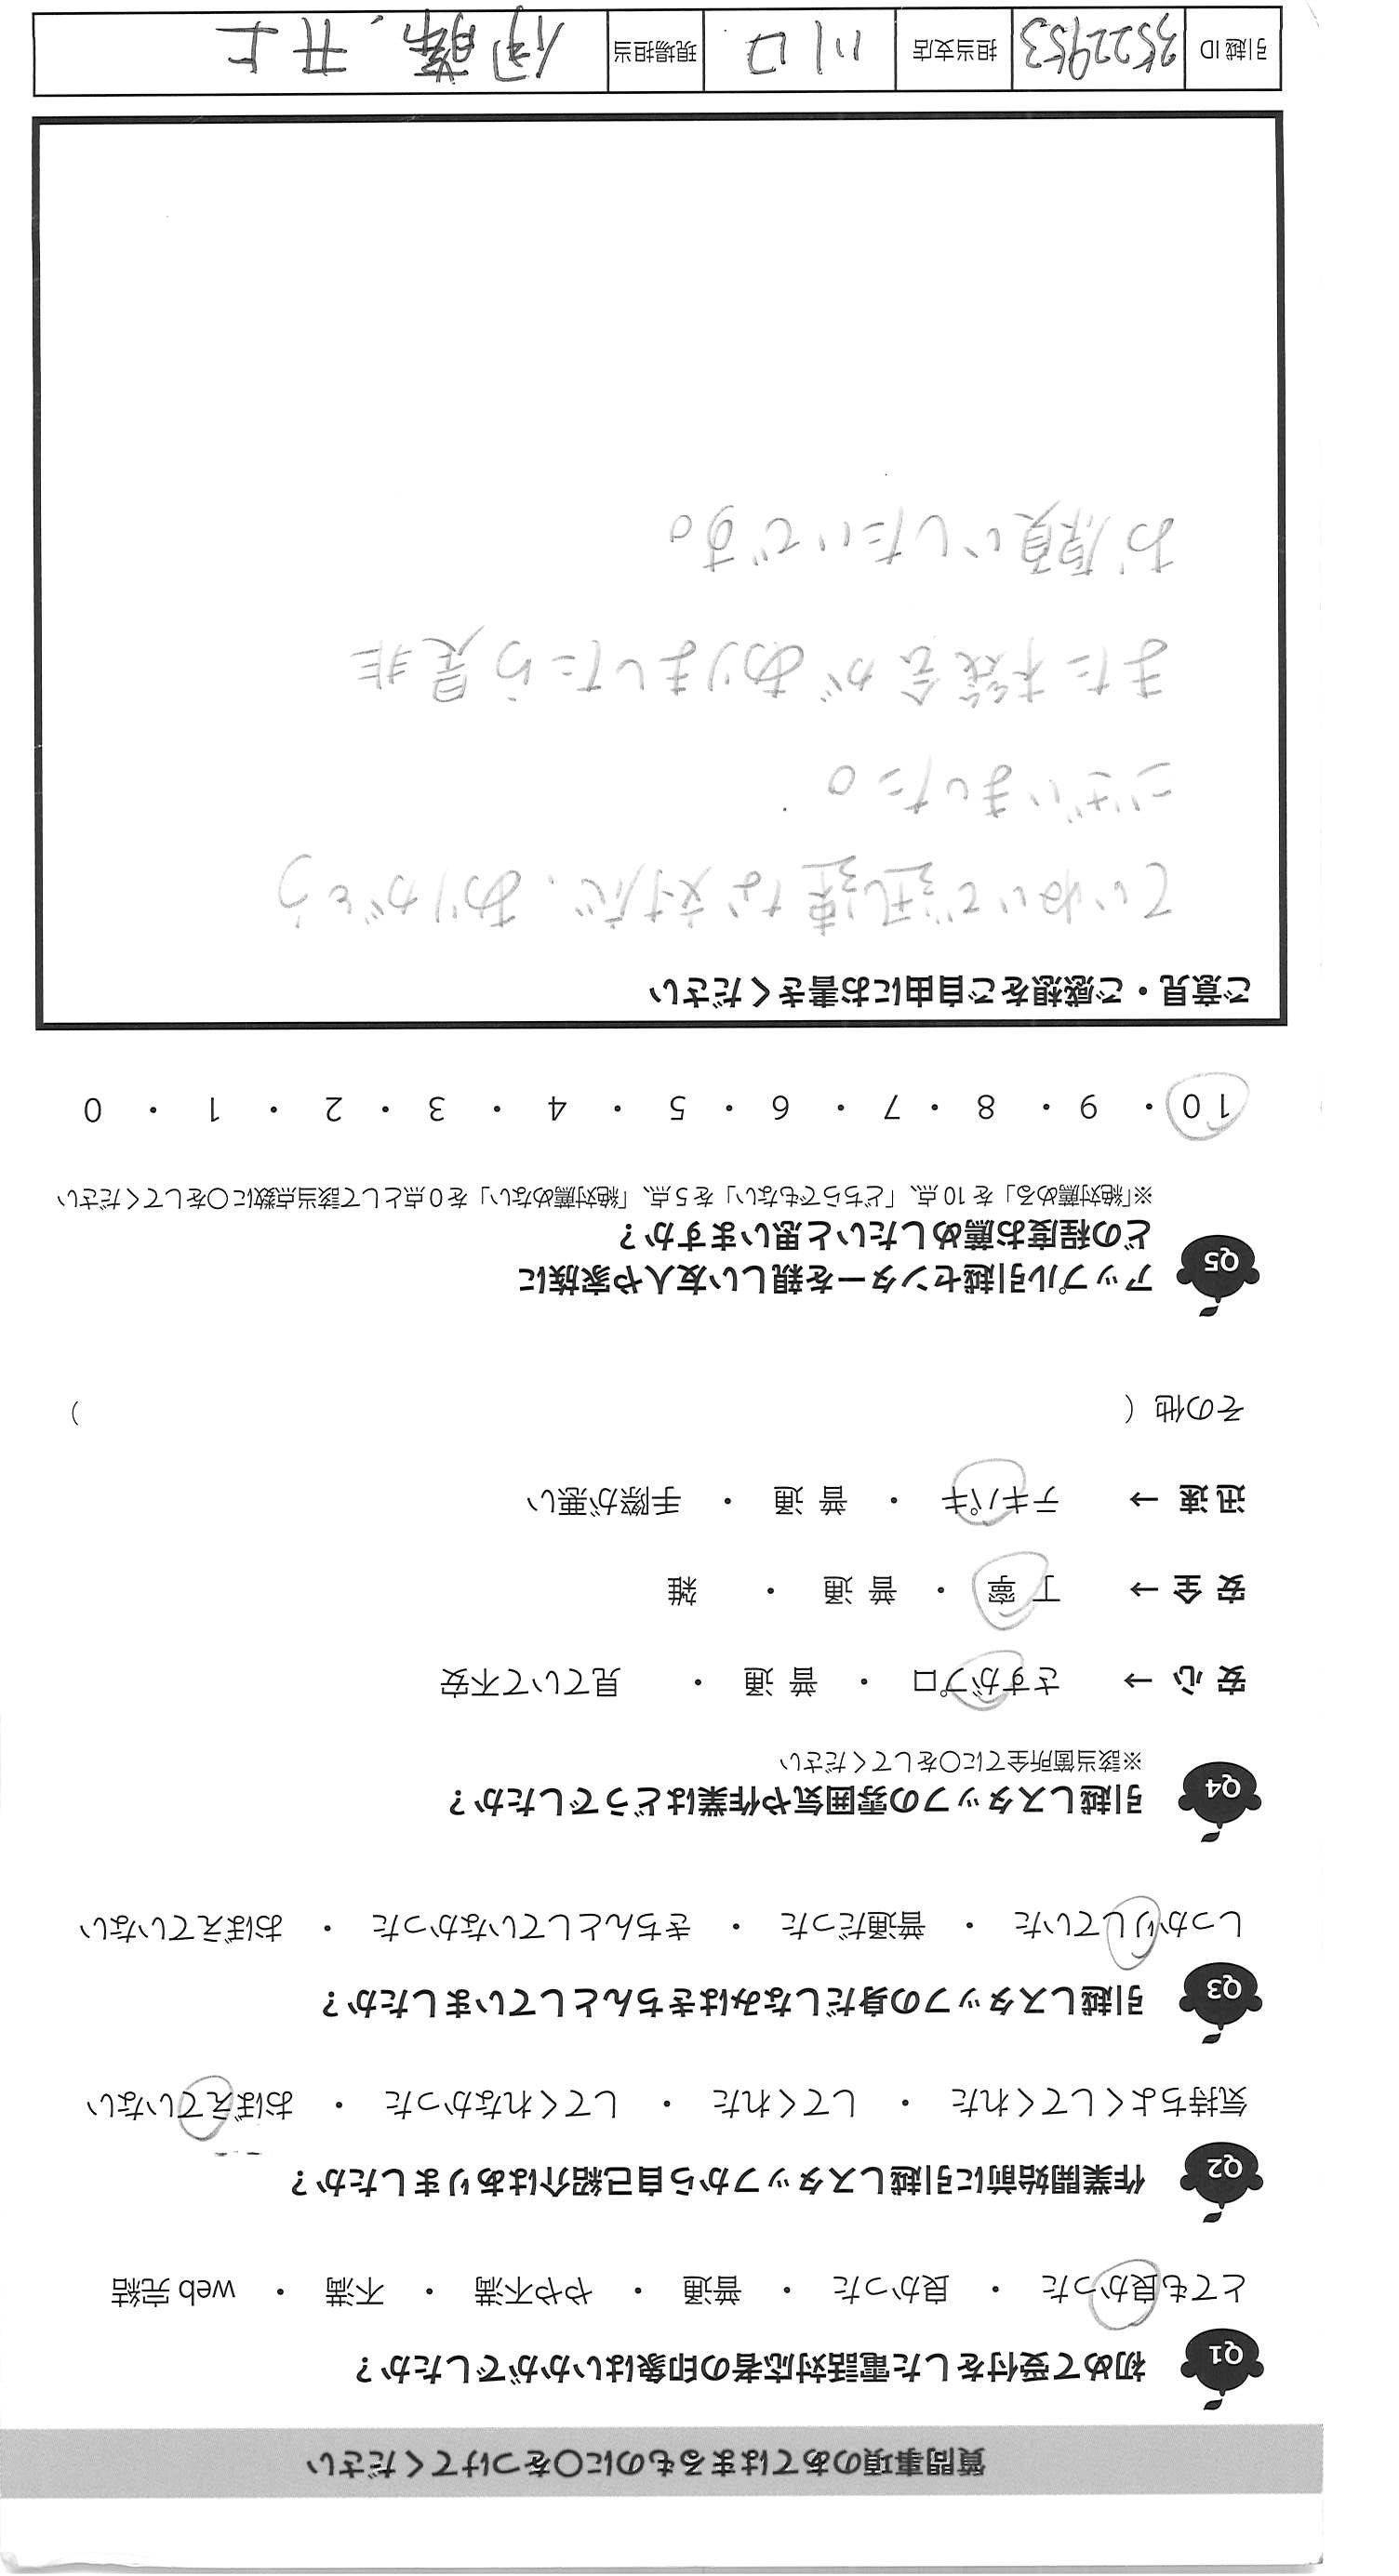 質問事項のあてはまるものに○をつけてください
Q1 初めて受付をした電話対応者の印象はいかがでしたか？
とても良かった ・ 良かった ・ 普通 ・ やや不満 ・ 不満 ・ web 完結
Q2 作業開始前に引越しスタッフから自己紹介はありましたか？
気持ちよくしてくれた ・ してくれた ・ してくれなかった ・ おぼえていない
Q3 引越しスタッフの身だしなみはきちんとしていましたか？
しっかりしていた ・ 普通だった ・ きちんとしていなかった ・ おぼえていない
Q4 引越しスタッフの雰囲気や作業はどうでしたか？
※該当箇所全てに○をしてください
安 心 → さすがプロ ・ 普 通 ・ 見ていて不安
安 全 → 丁 寧 ・ 普 通 ・ 雑
迅 速 → テキパキ ・ 普 通 ・ 手際が悪い
その他（ ）
Q5 アップル引越センターを親しい友人や家族に
どの程度お薦めしたいと思いますか？
※「絶対薦める」を 10 点、「どちらでもない」を 5 点、「絶対薦めない」を 0 点として該当点数に○をしてください
10 ・ 9 ・ 8 ・ 7 ・ 6 ・ 5 ・ 4 ・ 3 ・ 2 ・ 1 ・ 0
ご意見・ご感想をご自由にお書きください
ていねいで迅速な対応、ありがとう
ございました。
また機会がありましたら是非
お願いしたいです。
引越 ID 3522953 担当支店 川口 現場担当 伊藤、井上